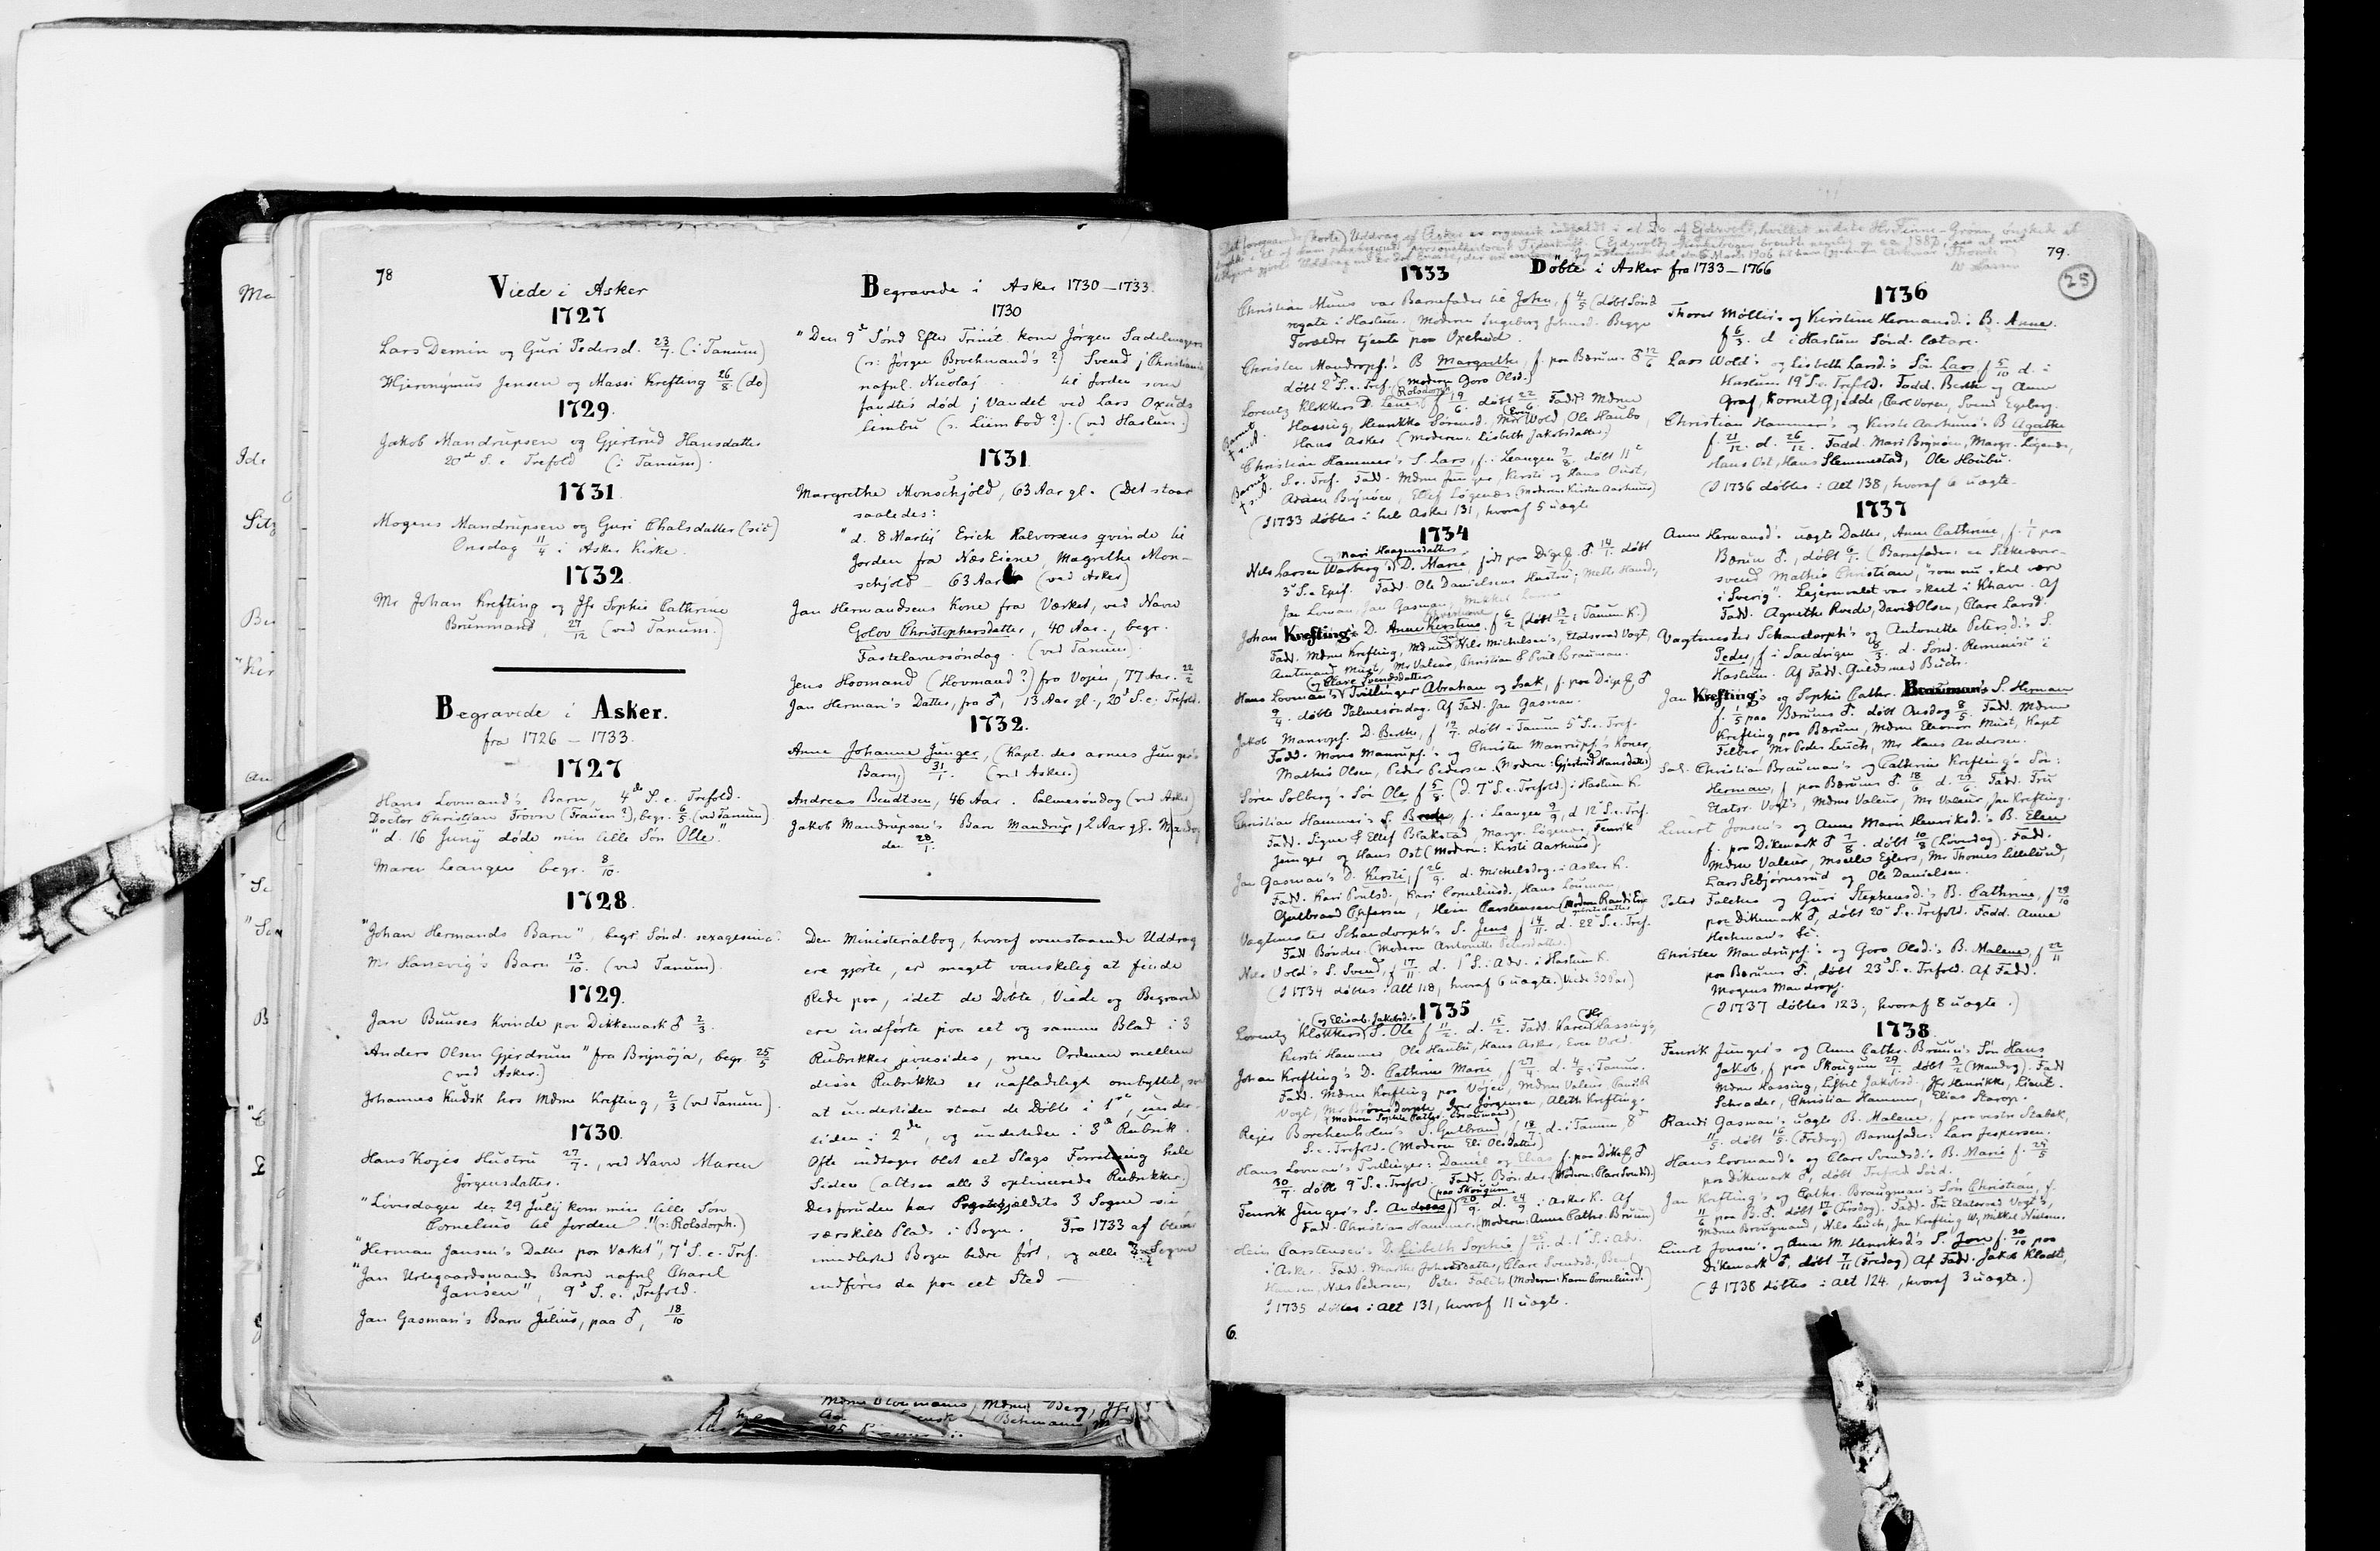 78
Viede i Asker
1727
Lars Demin og Guri Pedersd. 23/7. (i Tanum)
Hjeronymus Jensen og Massi Krefting 26/8. (do)
1729.
Jakob Mandrupsen og Gjertrud Hansdatter
20de S. e. Trefold (i Tanum).
1731
Mogens Mandrupsen og Guri Chalsdatter (sic)
Onsdag 11/4 i Asker Kirke.
1732
Mr Johan Krefting og Jfr Sophie Cathrine
Brunmand, 27/12 (ved Tanum.)
Begravede i Asker.
fra 1726 – 1733.
1727
Hans Lovmand's Barn, 4de S. e. Trefold.
Doctor Christian Trovn (Frauen?), begr. 6/5 (ved Tanum)
"d. 16 Junij døde min lille Søn Olle."
Maren Leangen begr. 8/10.
1728.
"Johan Hermands Barn", begr. Sønd. sexagesima.
Mr Hansevig's Barn 13/10. (ved Tanum).
1729.
Jan Buuses Kvinde paa Dikkemark ♂ 2/3.
Anders Olsen Gjerdrum "fra Brynøja, begr. 25/5
(ved Asker.)
Johannes Kudsk hos Mdme Krefting, 2/3 (ved Tanum).
1730.
Hans Kojes Hustru 27/7., ved Navn Maren
Jørgensdatter.
"Løverdagen den 29 Julij kom min lille Søn
Cornelius til Jorden". (ɔ: Rolsdorph.)
"Herman Jansen's Datter paa Værket", 7de S. e. Tref.
"Jan Urtegaardsmands Barn nafnl. Charel
Jansen", 9de S. e. Trefold.
Jan Gasman's Barn Julius, paa ♂, 18/10
Begravede i Asker 1730–1733.
1730
"Den 9de Sønd Efter Trinit. kom Jørgen Sadelmagers
(ɔ: Jørgen Brochmand's ?) Svend j Christiania
nafnl. Nicolaj til Jorden som
fandtis død j Vandet ved Lars Oxuds
lembu (ɔ: Liimbod ?). (ved Haslum.)
1731
Margrethe Monschjold, 63 Aar gl. (Det staar
saaledes:
"d. 8 Martij Erich Halvorsens qvinde til
Jorden fra Næs Eierne, Magrethe Mon-
schjold – 63 Aar (ved Asker)
Jan Hermandsens Kone fra Værket, ved Navn
Golov Christophersdatter, 40 Aar, begr.
Fastelavnssøndag. (ved Tanum)
Jens Hoomand (Hovmand?) fra Vojen, 77 Aar. 22/2
Jan Herman's Datter, fra ♂, 13 Aar gl., 20de S. e. Trefold.
1732.
Anne Johanne Junger, (Kapt. des armes Junger's
Barn) 31/1. (ved Asker.)
Andreas Bendtsen, 46 Aar. Palmesøndag (ved Asker)
Jakob Mandrupsen's Barn Mandrup, 2 Aar gl. Mandag
den 28/1.
Den Ministerialbog, hvoraf ovenstaaende Uddrag
ere gjorte, er meget vanskelig at finde
Rede paa, idet de Døbte, Viede og Begravede
ere indførte paa eet og samme Blad i 3
Rubrikker jevnsides, men Ordenen mellem
disse Rubrikker er uafladeligt ombyttet,
at undertiden staar de Døbte i 1ste, under-
tiden i 2de, og undertiden i 3de Rubrik.
Ofte indtager blot eet Slags Forretning hele
Siden (altsaa alle 3 oplinierede Rubrikker.)
Desforuden har Præstegjældets 3 Sogne sin
særskilte Plads i Bogen. Fra 1733 af bliver
imidlertid Bogen bedre ført, og alle 3 Sogne
indføres da paa eet Sted –
79.
25
Døbte i Asker fra 1733–1766
1733
Christian Muus var Barnefader til John, f 4/5 (døbt Sønd
rogate i Haslum. (Moderen Ingeborg Johnsd. Begge
Forældre tjente paa Oxehud.
Christen Mandropf's B Margrethe, f. paa Bærum ♂ 12/6
døbt 2de S. e. Tref. (Moderen Goro Olsd.)
Lorentz Klokkers D. Lene f 19/6. døbt 22/6 Fadd. Mdme
Hassing, Henrikke Sørensd. Mr Wold, Ole Haubo,
Hans Asker (Moderen: Lisbeth Jakobsdatter)
Christian Hammer's S. Lars, f. i Leangen 7/8. døbt 11te
S. e. Tref. Fadd. Mdme Junger, Kirsti og Hans Oust,
Adam Brynøen, Ellef Løgenæs (Moderen Kirsten Aarhuus)
(I 1733 døbtes i hele Asker 131, hvoraf 5 uægte
1734
(og Kari Haagensdatters
Nils Larsen Warberg's D. Marie, født paa Dige ♂ 14/1. døbt
3de S. e. Epif. Fadd. Ole Danielsens Hustru; Mette Hansd.,
Jan Loman, Jan Gasman,
Johan Krefting's D. Anne Kirstine, f 6/2 (døbt 12/2 i Tanum K.)
Fadd. Mdme Krefting, Mdme Nils Michelsen's, Etatsraad Vogt,
Amtmand Must, Mr Valeur, Christian & Poul Brauman.
og Clare Svendsdatters
Hans Lovman's Tvillinger Abraham og Isak, f. paa Dige ♂
9/4. døbte Palmesøndag. Af Fadd. Jan Gasman.
Jakob Manropf. D. Berthe, f 12/7. døbt i Tanum 5te S. e. Tref.
Fadd. Mons Manrupf.'s og Christen Manrupf.'s Koner,
Mathis Olsen, Peder Pedersen. (Moderen: Gjertrud Hansdatter)
Søren Solberg's Søn Ole f 5/8. (d. 7de S. e. Trefold.) i Haslum K.
Christian Hammer's S. Brede, f. i Leangen 9/9, d 12te S. e. Tref.
Fadd. Signe & Ellef Blakstad, Margr. Løgenæs, Fenrik
Junger og Hans Ost (Moderen: Kirsti Aarhuus).
Jan Gasman's D. Kirsti, f 26/9. d. Mickelsdag. i Asker K.
Fadd. Kari Poulsd., Kari Corneliusd., Hans Louman,
Vagtmester Schandorph's S. Jens f 14/11. d. 22de S. e. Tref.
Fadd Bønder. (Moderen Antonette Petersdatter.)
Nils Vold's S. Svend, f 17/11 d. 1ste S. i Adv. i Haslum K.
(I 1734 døbtes i Alt 118, hvoraf 6 uægte.) Viede 30 Par)
1735
og Elisab. Jakobsd.s
Lorentz Klokkers S. Ole f 11/2. d. 15/2. Fadd. Karen Hassing's,
Kirsti Hammer, Ole Haubu, Hans Asker, Even Vold.
Johan Krefting's D. Cathrine Marie, f 27/4 d. 4/5 i Tanum.
Fadd. Mdme Krefting paa Vøjen, Mdme Valeur, Cancel.R
(Moderen Sophie Cathr. Brouman)
Rejer Borchenholm's S. Gulbrand, f 18/7 d. i Tanum 8de
S. e. Trefold. (Moderen Eli Olsdatter)
Hans Lovman's Tvillinger: Daniel og Elias f. paa Dikke ♂
30/7. døbte 9de S. e. Trefold. Fadd. Bønder (Moderen: Clare Svendsd.)
paa Skougum
Fenrik Junger's S. Andreas f 20/9. d. 24/9 i Asker K. Af
Fadd. Christian Hammer. (Moderen: Anne Cathr. Bruun)
Hein Carstensen's D. Lisbeth Sophie f 25/11. d. 1ste S. i Adv.
i Asker. Fadd. Marthe Johansdatter, Clare Svendsd., Bent
Hansen, Nils Pedersen, Peter Falch (Moderen: Karen Corneliusd.)
I 1735 døbtes i Alt 131, hvoraf 11 uægte.
6.
1736
Thorer Møller's og Kirstine Hermansd.'s B. Anne.
f 6/3. d i Haslum Sønd. lætare.
Lars Wold's og Lisbeth Larsd.'s Søn Lars f 5/10 d. i
Haslum 19de S. e. Trefold. Fadd. Berthe og Anne
Graf, Kornet Gjedde, Carl Voren, Svend Egeberg.
Christian Hammer's og Kirste Aarhuus's B Agathe
f. 21/12. d. 26/12. Fadd. Mari Brynøen, Margr. Løgenæs,
Hans Ost, Hans Slemmestad, Ole Houbu.
(I 1736 døbtes i Alt 138, hvoraf 6 uægte.
1737
Anne Hermansd.'s uægte Datter, Anne Cathrine, f. 1/1 paa
Bærum ♂, døbt 6/1. (Barnefader: en Silkevæver-
svend Mathis Christian, "som nu skal være
i Sverig". Lejermaalet var skeet i Khavn. Af
Fadd. Agnethe Rvede, David Olsen, Clare Larsd.
Vagtmester Schandorph's og Antonette Petersd.'s S.
Peder, f i Sandvigen 8/3. d. Sønd. Reminisc. i
Haslum. Af Fadd. Guldsmed Buch.
Jan Krefting's og Sophie Cathr. Brauman's S. Herman
f. 1/5 paa Bærums ♂. døbt Onsdag 8/5. Fadd. Mdme
Krefting paa Bærum, Mdme Eleonore Must, Kapt
Felber, Mr Peder Leuch, Mr Hans Andersen.
Sal. Christian Brauman's og Cathrine Krefting's Søn:
Herman, f paa Bærums ♂ 18/6 d. 27/6. Fadd. Fru
Etatsr. Vogt's, Mdme Valeur, Mr Valeur, Jan Krefting.
Linert Jonsen's og Anne Marie Henriksd.'s B. Elen
f. paa Dikemark ♂ 7/8. døbt 10/8 (Løverdag). Fadd.
Mdme Valeur, Mselle Ejlers, Mr Thomes Lillelund,
Lars Sebjørnsrud og Ole Danielsen.
Peter Falchs og Guri Stephensd.'s B. Cathrine, f 29/10
paa Dikemark ♂, døbt 20de S. e. Trefold. Fadd. Anne
Christen Mandrupf.'s og Goro Olsd.'s B. Malene, f 22/11
paa Bærums ♂, døbt 23de S. e. Trefold. Af Fadd.
Mogens Mandropf.
(I 1737 døbtes 123, hvoraf 8 uægte.)
1738.
Fenrik Junger's og Anne Cathr. Bruun's Søn Hans
Jakob, f paa Skougum 29/1. døbt 3/2 (Mandag). Fadd
Mdme Hassing, Lisbet Jakobsd., Jfr Henrikke, Lieut.
Schrader, Christian Hammer, Elias Starop.
Randi Gasman's uægte B. Malene, f paa vestre Stabek,
11/5. døbt 16/5 (Fredag.) Barnefader: Lars Jespersen.
Hans Lovmand's og Clare Svendsd.'s B. Marie f. 25/5
paa Dikemark ♂, døbt Trefold. Sønd.
Jan Krefting's og Cathr. Braugman's Søn Christian, f.
11/6 paa B. ♂ døbt 17/6 (Tirsdag). Fadd. Fru Etatsraad Vogt's,
Mdme Braugmand, Nils Leuch, Jan Krefting og Mikkel Nielsen.
Linert Jonsen's og Anne M. Henriksd's S. Jon f. 30/10 paa
Dikemark ♂, døbt 7/11 (Fredag) Af Fadd. Jakob Kladt,
(I 1738 døbtes i Alt 124, hvoraf 3 uægte.)